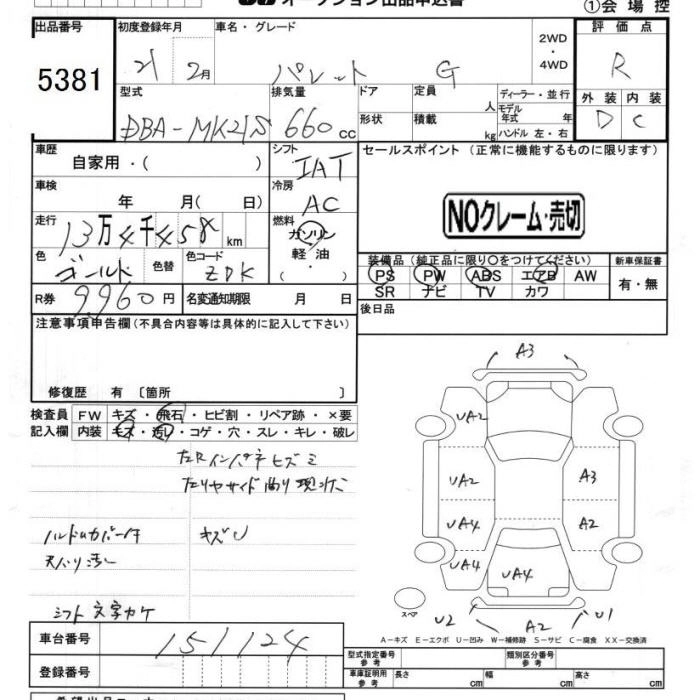 オークション出品申込書 ①会場控
出品番号 初度登録年月 車名・グレード 2WD・4WD 評価点
5381 21 2月 パレット G R
型式 排気量 ドア 定員 人 ディーラー・並行 外装 内装
DBA-MK21S 660cc 形状 積載 kg モデル年式 年 ハンドル 左・右 D C
車歴 シフト セールスポイント (正常に機能するものに限ります)
自家用・( ) IAT
車検 冷房
年 月( 日) AC NOクレーム・売切
走行 燃料
13万4千458km ガソリン
軽油
( ・ )
色 色替 色コード 装備品 (純正品に限り○をつけてください) 新車保証書
ゴールド ZDK PS PW ABS エアB AW 有・無
SR ナビ TV カワ
R券 9960円 名変通知期限 月 日 後日品
注意事項申告欄(不具合内容等は具体的に記入して下さい)
修復歴 有 〔箇所 〕
検査員 FW キズ・飛石・ヒビ割・リペア跡・×要
記入欄 内装 キズ・汚レ・コゲ・穴・スレ・キレ・破レ
左Rインパネヒズミ
左リヤサイド曲り
ハンドルカバー付 キズU
天バリ汚レ
シフト文字カケ
A3
UA2
UA2 A3
UA4 A2
UA4 UA4
スペア U2 A2 U1
A―キズ E―エクボ U―凹み W―補修跡 S―サビ C―腐食 XX―交換済
車台番号 151124
登録番号
型式指定番号 参考 類別区分番号 参考
車庫証明用 参考 長さ cm 幅 cm 高さ cm